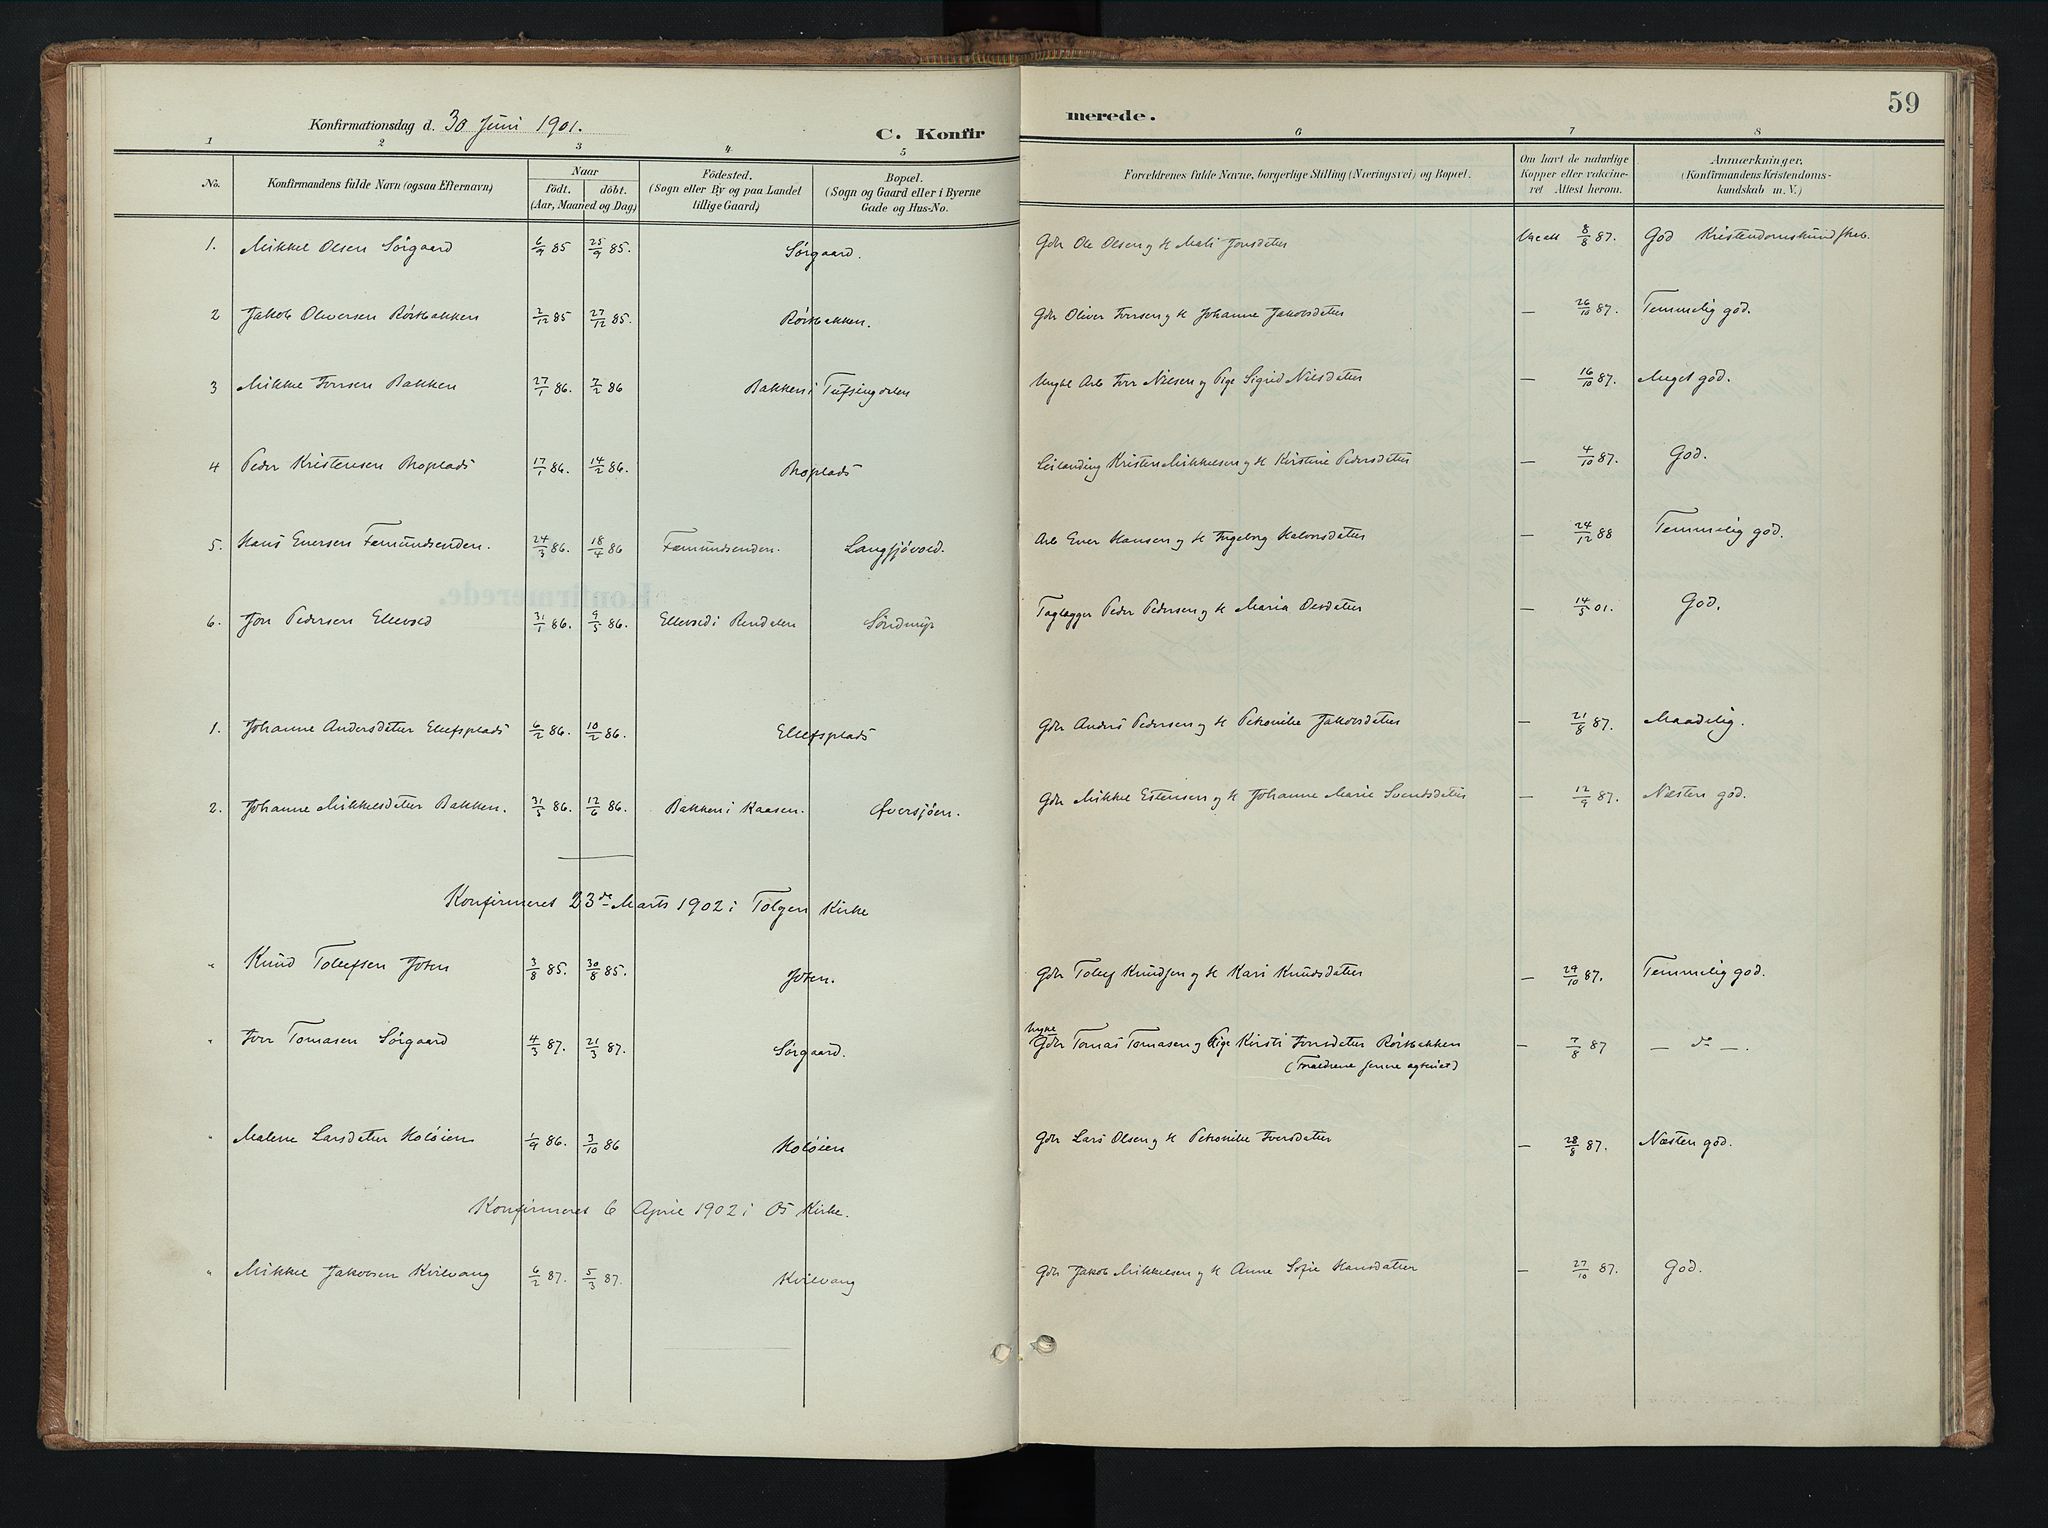 Konfirmationsdag d. 30 Juni 1901.
C. Konfir
merede.
59
1 2 3 4 5 6 7 8
No. Konfirmandens fulde Navn (ogsaa Efternavn) Naar födt. döbt. (Aar, Maaned og Dag) Födested. (Sogn eller By og paa Landet tillige Gaard) Bopæl. (Sogn og Gaard eller i Byerne Gade og Hus-No. Forældrenes fulde Navne, borgerlige Stilling (Næringsvei) og Bopæl. Om havt de naturlige Kopper eller vakcineret Attest herom. Anmærkninger. (Konfirmandens Kristendomskundskab m. V.)
1. Mikkel Olsen Sörgaard 6/9 85 25/9 85. Sörgaard. Gdr Ole Olsen og H Mali Jonsdatter 8/8 87. God Kristendomskundskab.
2 Jakob Oliversen Rörbakken 2/12 85 27/12 85. Rörbakken. Gdr Oliver Iversen og H Johanne Jakobsdatter — 26/10 87. Temmelig god.
3 Mikkel Iversen Bakken 27/1 86. 7/2 86 Bakken i Tufsingdalen Ungkl Arb Iver Nilsen og Pige Sigrid Nilsdatter — 16/10 87. Meget god.
4 Peder Kristensen Moplads 17/1 86. 14/2 86. Moplads Leilænding Kristen Mikkelsen og H Kirstine Pedersdatter — 4/10 87. God.
5. Hans Eversen Fæmundsenden. 24/3 86. 18/4 86 Fæmundsenden. Langsjövold. Arb Ever Hansen og H Ingeborg Halvorsdatter — 24/12 88 Temmelig god.
6. Jon Pedersen Ellevold 31/1 86. 9/5 86. Ellevold i Rendalen Taglægger Peder Pedersen og H Maria Olesdatter — 14/5 01. God.
1. Johanne Andersdatter Ellefsplads 6/2 86. 10/2 86. Ellefsplads Gdr Anders Pedersen og H Petronilie Jakobsdatter — 21/8 87. Maadelig.
2. Johanne Mikkelsdatter Bakken. 31/5 86. 12/6 86. Bakken i Kaasen. Øversjöen. Gdr Mikkel Estensen og H Johanne Marie Svendsdatter — 12/9 87. Næsten god.
Konfirmeret 23de Marts 1902 i Tolgen Kirke
" Knud Tollefsen Joten 3/8 85. 30/8 85. Joten. Gdr Tollef Knudsen og H Kari Knudsdatter — 29/10 87. Temmelig god.
" Iver Tomasen Sörgaard 4/3 87. 21/3 87. Sörgaard. Gdr Tomas Tomasen og Pige Kirsti Iversdatter Rörbakken — 7/8 87 — do —.
(Forældrene senere egteviet)
" Malene Larsdatter Holöien 1/9 86. 3/10 86 Holöien Gdr Lars Olsen og H Petronilie Iversdatter — 28/8 87. Næsten god.
Konfirmeret 6 April 1902 i Os Kirke.
" Mikkel Jakobsen Kvilvang 6/2 87. 5/3 87. Kvilvang Gdr Jakob Mikkelsen og H Anne Sofie Hansdatter — 27/10 87. God.